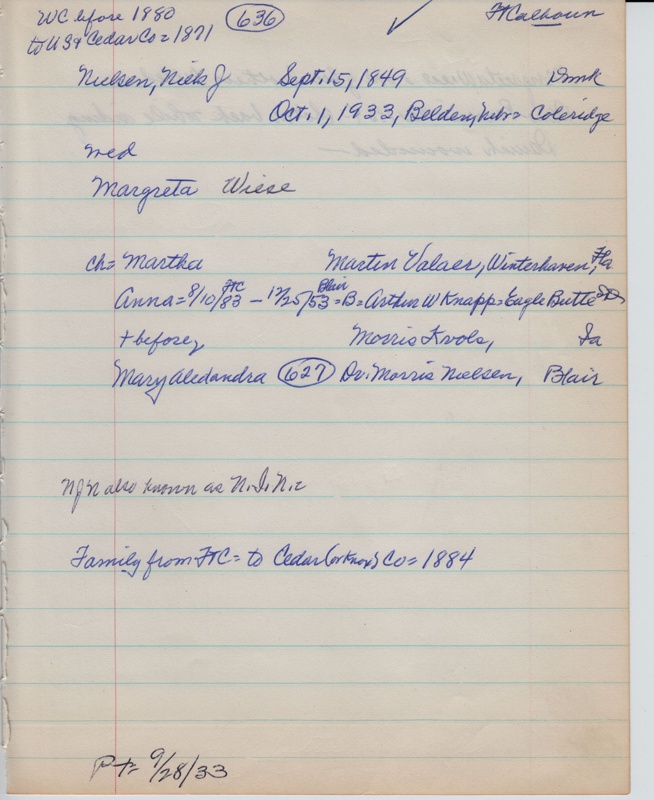 WC before 1880 636 Ft Calhoun
to US & Cedar Co = 1871
Nielsen, Niels J Sept. 15, 1849 Dmk
Oct. 1, 1933, Belden, Nebr = Coleridge
med
Margreta Wiese
ch = Martha Martin Valaer, Winterhaven, Fla
Anna = 8/10/83 FTC – 12/25/53 Blair = B = Arthur W Knapp = Eagle Butte SD
+ before, Morris Kvols, Ia
Mary Aledandra 627 Dr. Morris Nielsen, Blair
NJN also known as N.I.N.
Family from FtC = to Cedar (or Knox) Co = 1884
P+ = 9/28/33